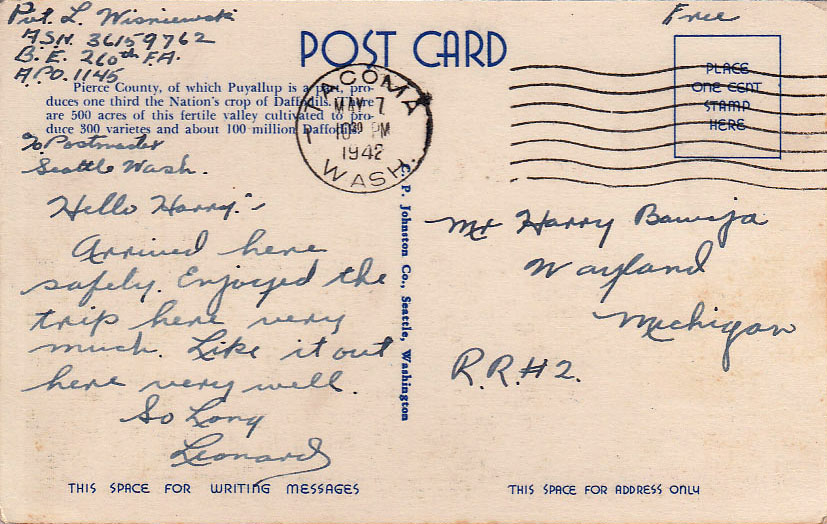 Pvt. L. Wisniewski
ASN. 36159762
B.E. 260th F.A.
A.P.O. 1145
Free
POST CARD
Pierce County, of which Puyallup is a part, pro-
duces one third the Nation's crop of Daffodils. There
are 500 acres of this fertile valley cultivated to pro-
duce 300 varietes and about 100 million Daffodils.
TACOMA
MAY 7
10 30 PM
1942
WASH.
PLACE
ONE CENT
STAMP
HERE
c/o Postmaster
Seattle Wash.
Hello Harry:-
Arrived here
safely. Enjoyed the
trip here very
much. Like it out
here very well.
So Long
Leonard
C. P. Johnston Co., Seattle, Washington
Mr Harry
Wayland
Michigan
R.R.#2.
THIS SPACE FOR WRITING MESSAGES
THIS SPACE FOR ADDRESS ONLY